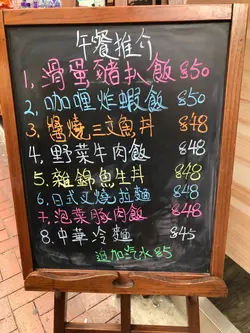 午餐推介
1, 滑蛋豬扒飯 $50
2, 咖喱炸蝦飯 $50
3, 醬燒三文魚丼 $48
4, 野菜牛肉飯 $48
5, 雜錦魚生丼 $48
6, 日式叉燒拉麵 $48
7, 泡菜豚肉飯 $48
8. 中華冷麵 $45
追加汽水 $5